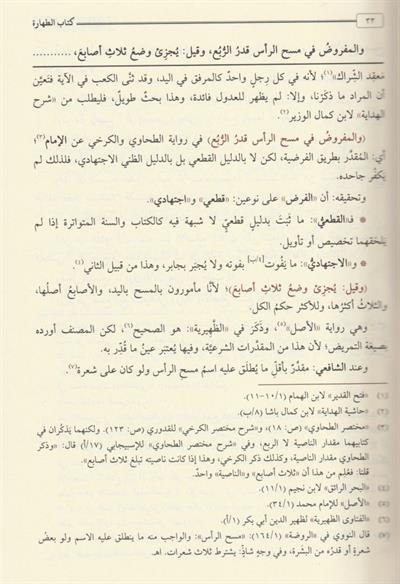 ٣٣ كتاب الطهارة
والمفروضُ في مسح الرأس قدرُ الرُّبُع، وقيل: يُجزِئ وضعُ ثلاثِ أصابعَ، ...........
مَعقِد الشِّراك»(١)؛ لأنه في كل رجلٍ واحدٌ كالمرفق في اليد، وقد ثنَّى الكعب في الآية فتعيَّن
أن المراد ما ذكرَنا، وإلا: لم يظهر للعدول فائدة، وهذا بحثٌ طويلٌ، فليطلب من «شرح
الهداية» لابن كمال الوزير(٢).
(والمفروضُ في مسح الرأس قدرُ الرُّبُع) في رواية الطحاوي والكرخي عن الإمام(٣)؛
أي: المُقدَّر بطريق الفرضية، لكن لا بالدليل القطعي بل بالدليل الظني الاجتهادي، فلذلك لم
يكفَّر جاحده.
وتحقيقه: أن «الفرض» على نوعين: «قطعي» و«اجتهادي».
* فـ«القطعيُّ»: ما ثبَتَ بدليلٍ قطعيٍّ لا شبهة فيه كالكتاب والسنة المتواترة إذا لم
يلحقهما تخصيص أو تأويل.
* و«الاجتهاديُّ»: ما يفُوت[١/ب] بفوته ولا يُجبَر بجابر، وهذا من قبيل الثاني(٤).
(وقيل: يُجزِئ وضعُ ثلاثِ أصابعَ)؛ لأنَّا مأمورون بالمسح باليد، والأصابعُ أصلُها،
والثلاثُ أكثرُها، وللأكثر حكمُ الكل.
وهي رواية «الأصل»(٥)، وذكَرَ في «الظَّهيرية»: هو الصحيح(٦)، لكن المصنف أورده
بصيغة التمريض؛ لأن هذا من المقدَّرات الشرعيَّة، وفيها يُعتبر عينُ ما قُدِّر به.
وعند الشافعي: مقدَّرٌ بأقلِّ ما يُطلَق عليه اسمُ مسحِ الرأس ولو كان على شعرة(٧).
(١) «فتح القدير» لابن الهمام (١/١٠-١١).
(٢) «حاشية الهداية» لابن كمال باشا (٨/ب).
(٣) «مختصر الطحاوي» (ص: ١٨)، و«شرح مختصر الكرخي» للقدوري (ص: ١٢٣). ولكنهما يذكُران في
كتابيهما مقدار الناصية لا الربع، وفي «شرح مختصر الطحاوي» للإسبيجابي (١٧/أ) قال: «وذكر
الطحاوي مقدار الناصية، وكذلك ذكر الكرخي، وهذا إذا كانت ناصيته تبلغ ثلاث أصابع».
قلنا: فعُلم من هذا أن «ثلاث أصابع» و«الناصية» واحدٌ.
(٤) «البحر الرائق» لابن نجيم (١/١١).
(٥) «الأصل» للإمام محمد (١/٣٤).
(٦) «الفتاوى الظهيرية» لظهير الدين أبي بكر (١/أ).
(٧) قال النووي في «الروضة» (١/١٦٤): «مسح الرأس»: والواجب منه ما ينطلق عليه الاسم ولو بعضَ
شعرةٍ أو قدرَه من البشرة، وفي وجهٍ شاذٍّ: يشترط ثلاث شعرات. اهـ.